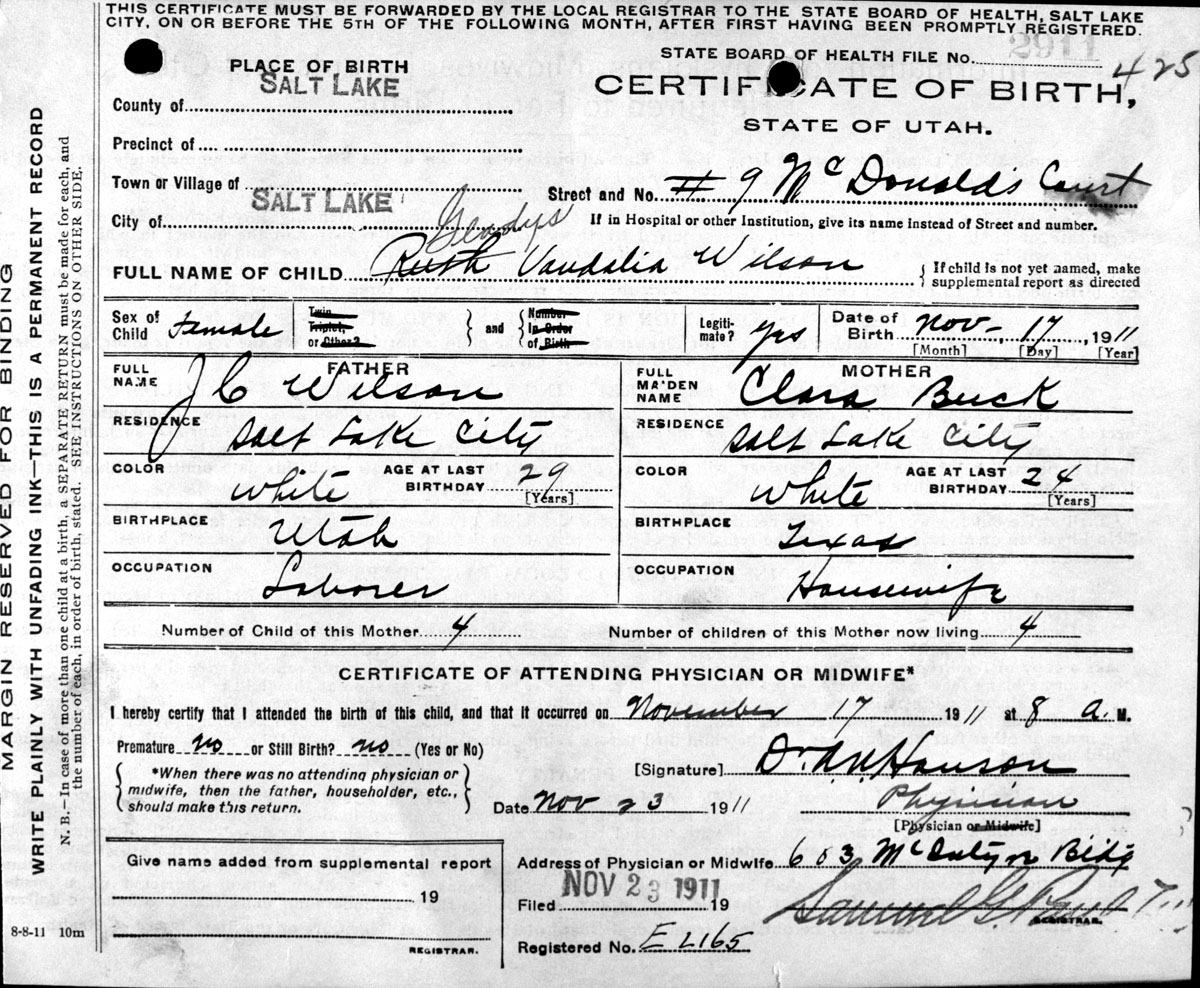 THIS CERTIFICATE MUST BE FORWARDED BY THE LOCAL REGISTRAR TO THE STATE BOARD OF HEALTH, SALT LAKE
CITY, ON OR BEFORE THE 5TH OF THE FOLLOWING MONTH, AFTER FIRST HAVING BEEN PROMPTLY REGISTERED.
STATE BOARD OF HEALTH FILE No. 2911 425
PLACE OF BIRTH
CERTIFICATE OF BIRTH,
STATE OF UTAH.
County of SALT LAKE
Precinct of
Town or Village of
Street and No. #9 McDonald's Court
City of SALT LAKE
If in Hospital or other Institution, give its name instead of Street and number.
Gladys
FULL NAME OF CHILD Ruth Vandalia Wilson
If child is not yet named, make
supplemental report as directed
Sex of Child Female
Twin, Triplet, or Other?
and
Number In Order of Birth
Legitimate? yes
Date of Birth Nov. 17, 1911
[Month] [Day] [Year]
FATHER
FULL NAME J C Wilson
RESIDENCE Salt Lake City
COLOR White
AGE AT LAST BIRTHDAY 29
[Years]
BIRTHPLACE Utah
OCCUPATION Laborer
MOTHER
FULL MAIDEN NAME Clara Buck
RESIDENCE Salt Lake City
COLOR White
AGE AT LAST BIRTHDAY 24
[Years]
BIRTHPLACE Texas
OCCUPATION Housewife
Number of Child of this Mother 4
Number of children of this Mother now living 4
CERTIFICATE OF ATTENDING PHYSICIAN OR MIDWIFE*
I hereby certify that I attended the birth of this child, and that it occurred on November 17 1911 at 8 a. M.
Premature no or Still Birth? no (Yes or No)
*When there was no attending physician or
midwife, then the father, householder, etc.,
should make this return.
[Signature] Dr. Hanson
Date Nov 23 1911
Physician
[Physician or Midwife]
Give name added from supplemental report
19
REGISTRAR.
Address of Physician or Midwife 603 Bldg
Filed NOV 23 1911 19
Samuel G.
REGISTRAR.
Registered No. E 2165
8-8-11 10m
MARGIN RESERVED FOR BINDING
WRITE PLAINLY WITH UNFADING INK—THIS IS A PERMANENT RECORD
N. B.—In case of more than one child at a birth, a SEPARATE RETURN must be made for each, and
the number of each, in order of birth, stated. SEE INSTRUCTIONS ON OTHER SIDE.